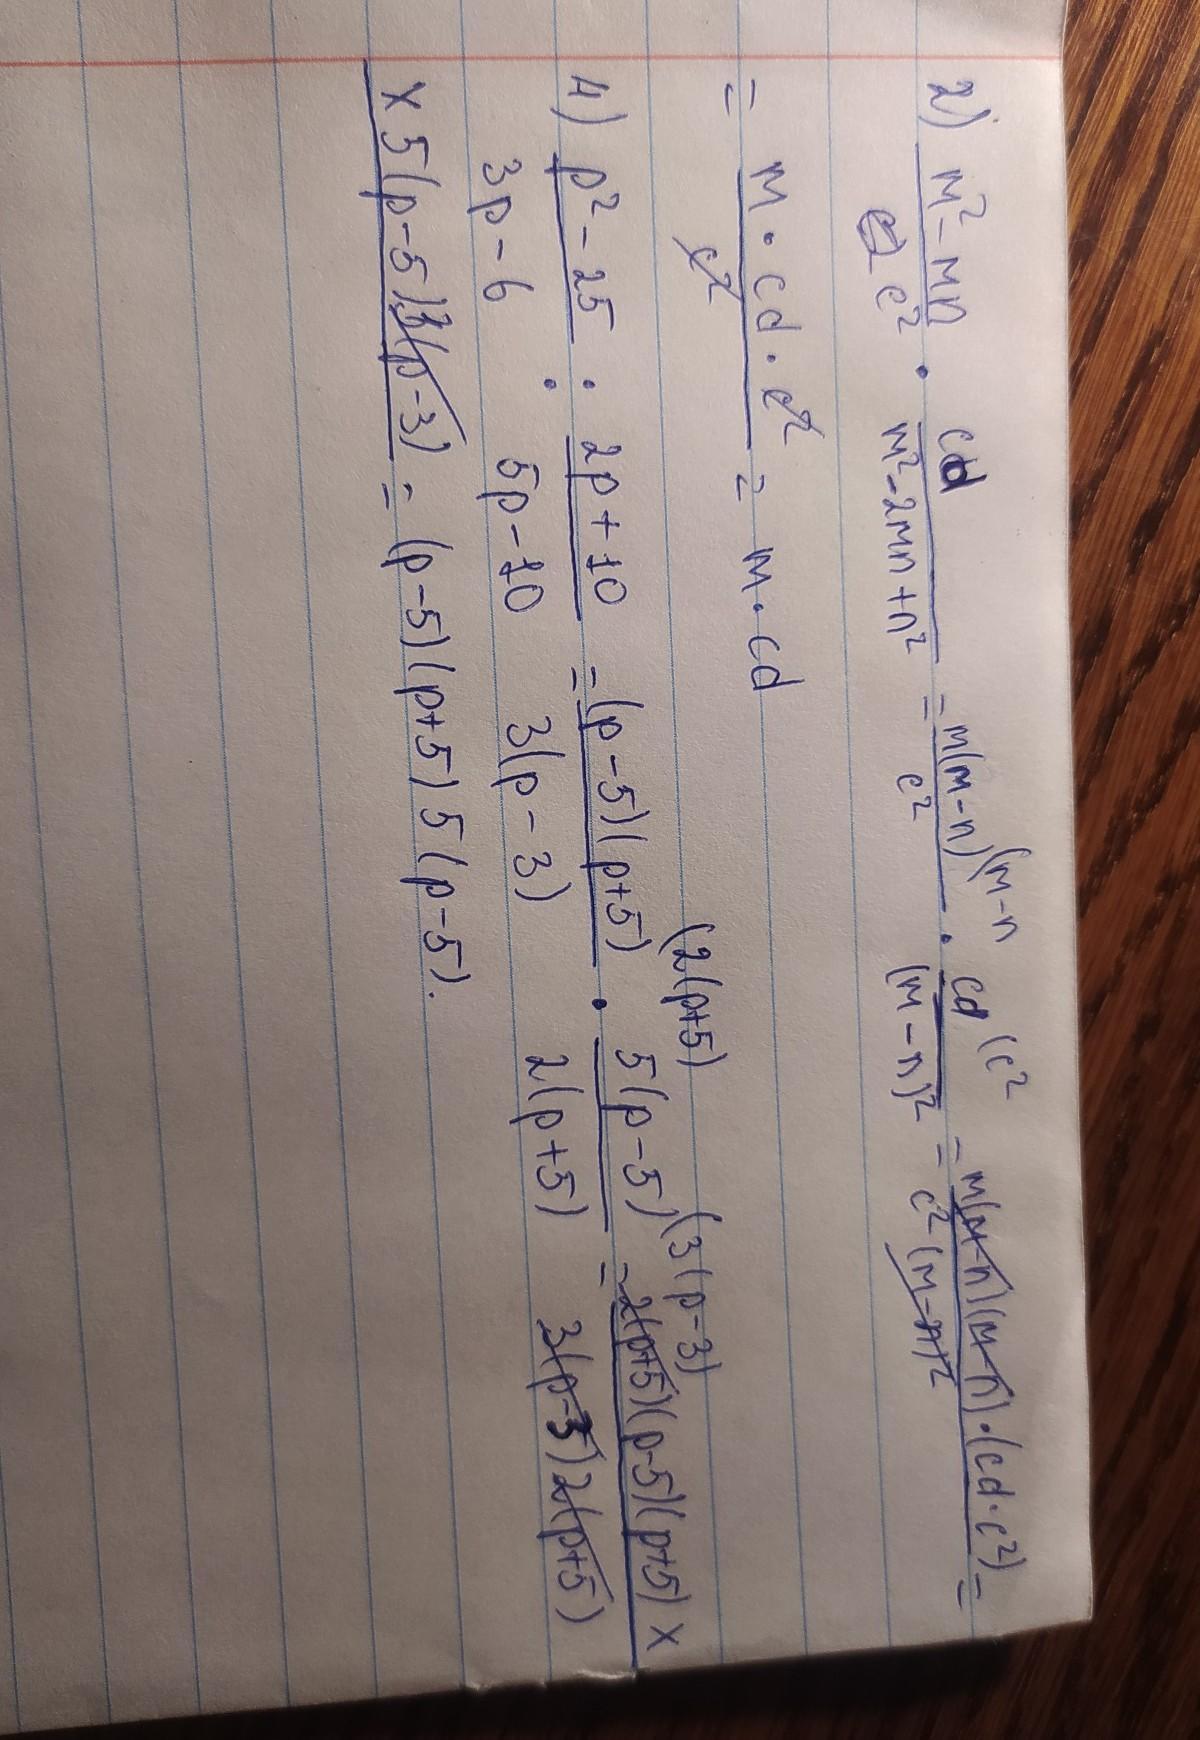 2) (m² - mn)/c² · cd/(m² - 2mn + n²) = m(m - n)/c² (m - n · cd/(m - n)² (c² = m(m - n)(m - n) · (cd · c²)/c²(m - n)² =
= m · cd · c²/c² = m · cd
4) (p² - 25)/(3p - 6) : (2p + 10)/(5p - 10) = (p - 5)(p + 5)/3(p - 3) (2(p+5) · 5(p - 5)/2(p + 5) (3(p - 3) = 2(p+5)(p-5)(p+5) x/3(p-3)2(p+5)
x 5(p - 5)3(p - 3) = (p - 5)(p + 5) 5(p - 5).